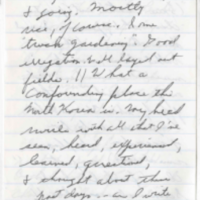 & going. Mostly
rice, of course. Some
"truck gardening". Good
irrigation. Well layed out
fields. // What a
confounding place this
North Korea is. My head
swirls with all that I've
seen, heard, experienced,
learned, questioned,
& thought about these
past days. - as I write